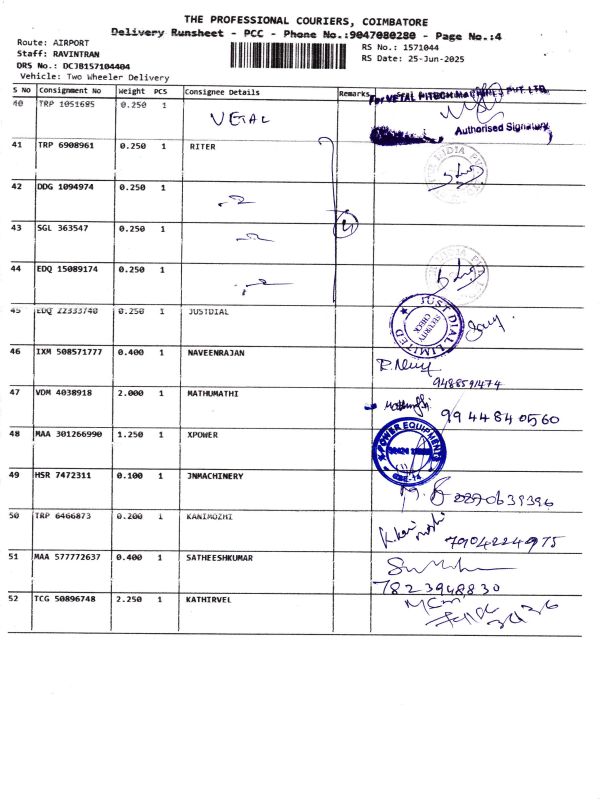 THE PROFESSIONAL COURIERS, COIMBATORE
Delivery Runsheet - PCC - Phone No.:9047080280 - Page No.:4
Route: AIRPORT
Staff: RAVINTRAN
DRS No.: DCJB157104404
Vehicle: Two Wheeler Delivery
RS No.: 1571044
RS Date: 25-Jun-2025
S No Consignment No Weight PCS Consignee Details Remarks
For VETAL HITECH MACHINES PVT. LTD.
40 TRP 1051685 0.250 1 VETAL
Authorised Signatory
41 TRP 6908961 0.250 1 RITER
42 DDG 1094974 0.250 1
43 SGL 363547 0.250 1
4
44 EDQ 15089174 0.250 1
45 EDQ 22333740 0.250 1 JUSTDIAL
JUST DIAL LIMITED
SECURITY CHECK
46 IXM 508571777 0.400 1 NAVEENRAJAN
9488591474
47 VDM 4038918 2.000 1 MATHUMATHI
9944840560
48 MAA 301266990 1.250 1 XPOWER
X-POWER EQUIPMENTS
49 HSR 7472311 0.100 1 JNMACHINERY
50 TRP 6466873 0.200 1 KANIMOZHI
7904224975
51 MAA 577772637 0.400 1 SATHEESHKUMAR
7823948830
52 TCG 50896748 2.250 1 KATHIRVEL